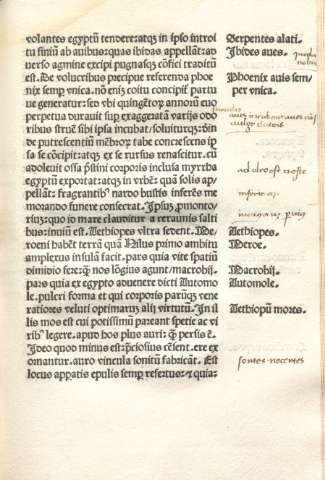 volantes egyptũ tendere: atqʒ in ipso introi
tu finiũ ab auibus: quas ibidas appellãt: ad
verso agmine excipi pugnasqʒ cõfici traditũ
est. De volucribus precipue referenda phoe
nix semp vnica. nõ eniʒ coitu concipit partu
ue generatur: sed vbi quingẽtorʒ annorũ euo
perpetua durauit sup exaggeratã varijs odo
ribus struẽ sibi ipsa incubat/ soluiturqʒ: dein
de putrescentiũ mẽbrorʒ tabe concrescens ip
sa se cõcipit: atqʒ ex se rursus renascitur. cũ
adoleuit ossa pristini corporis inclusa myrrha
egyptũ exportat: atqʒ in vrbẽ quã solis ap
pellãt: fragrantibus nardo bustis inferẽs me
morando funere consecrat. Ipsuʒ promonto/
riuʒ: quo id mare clauditur a ceraunis salti
bus: inuiũ est. Aethiopes vltra sedent. Me
roeni habẽt terrã quã Nilus primo ambitu
amplexus insulã facit. pars quia vite spatiũ
dimidio fere: qʒ nos lõgius agunt/ macrobij.
pars quia ex egypto aduenere dicti Automo
le. pulcri forma et qui corporis paruiʒqʒ vene
ratiores veluti optimarum alij virtutũ. In il
lis mos est cui potissimũ pareant spetie ac vi
ribus legere. apud hos plus auri: qʒ persis ẽ.
Ideo quod minus est: preciosius cẽsent. ere ex
ornantur. auro vincula sontiũ fabricãt. Est
locus apparatis epulis semp refertus: et quia:
Serpentes alati.
Ibides aues.
Phoenix auis sem
per vnica.
ad deo est
inferte
inuiu
Aethiopes.
Meroe.
Macrobij.
Automole.
Aethiopũ mores.
sontes · nocentes